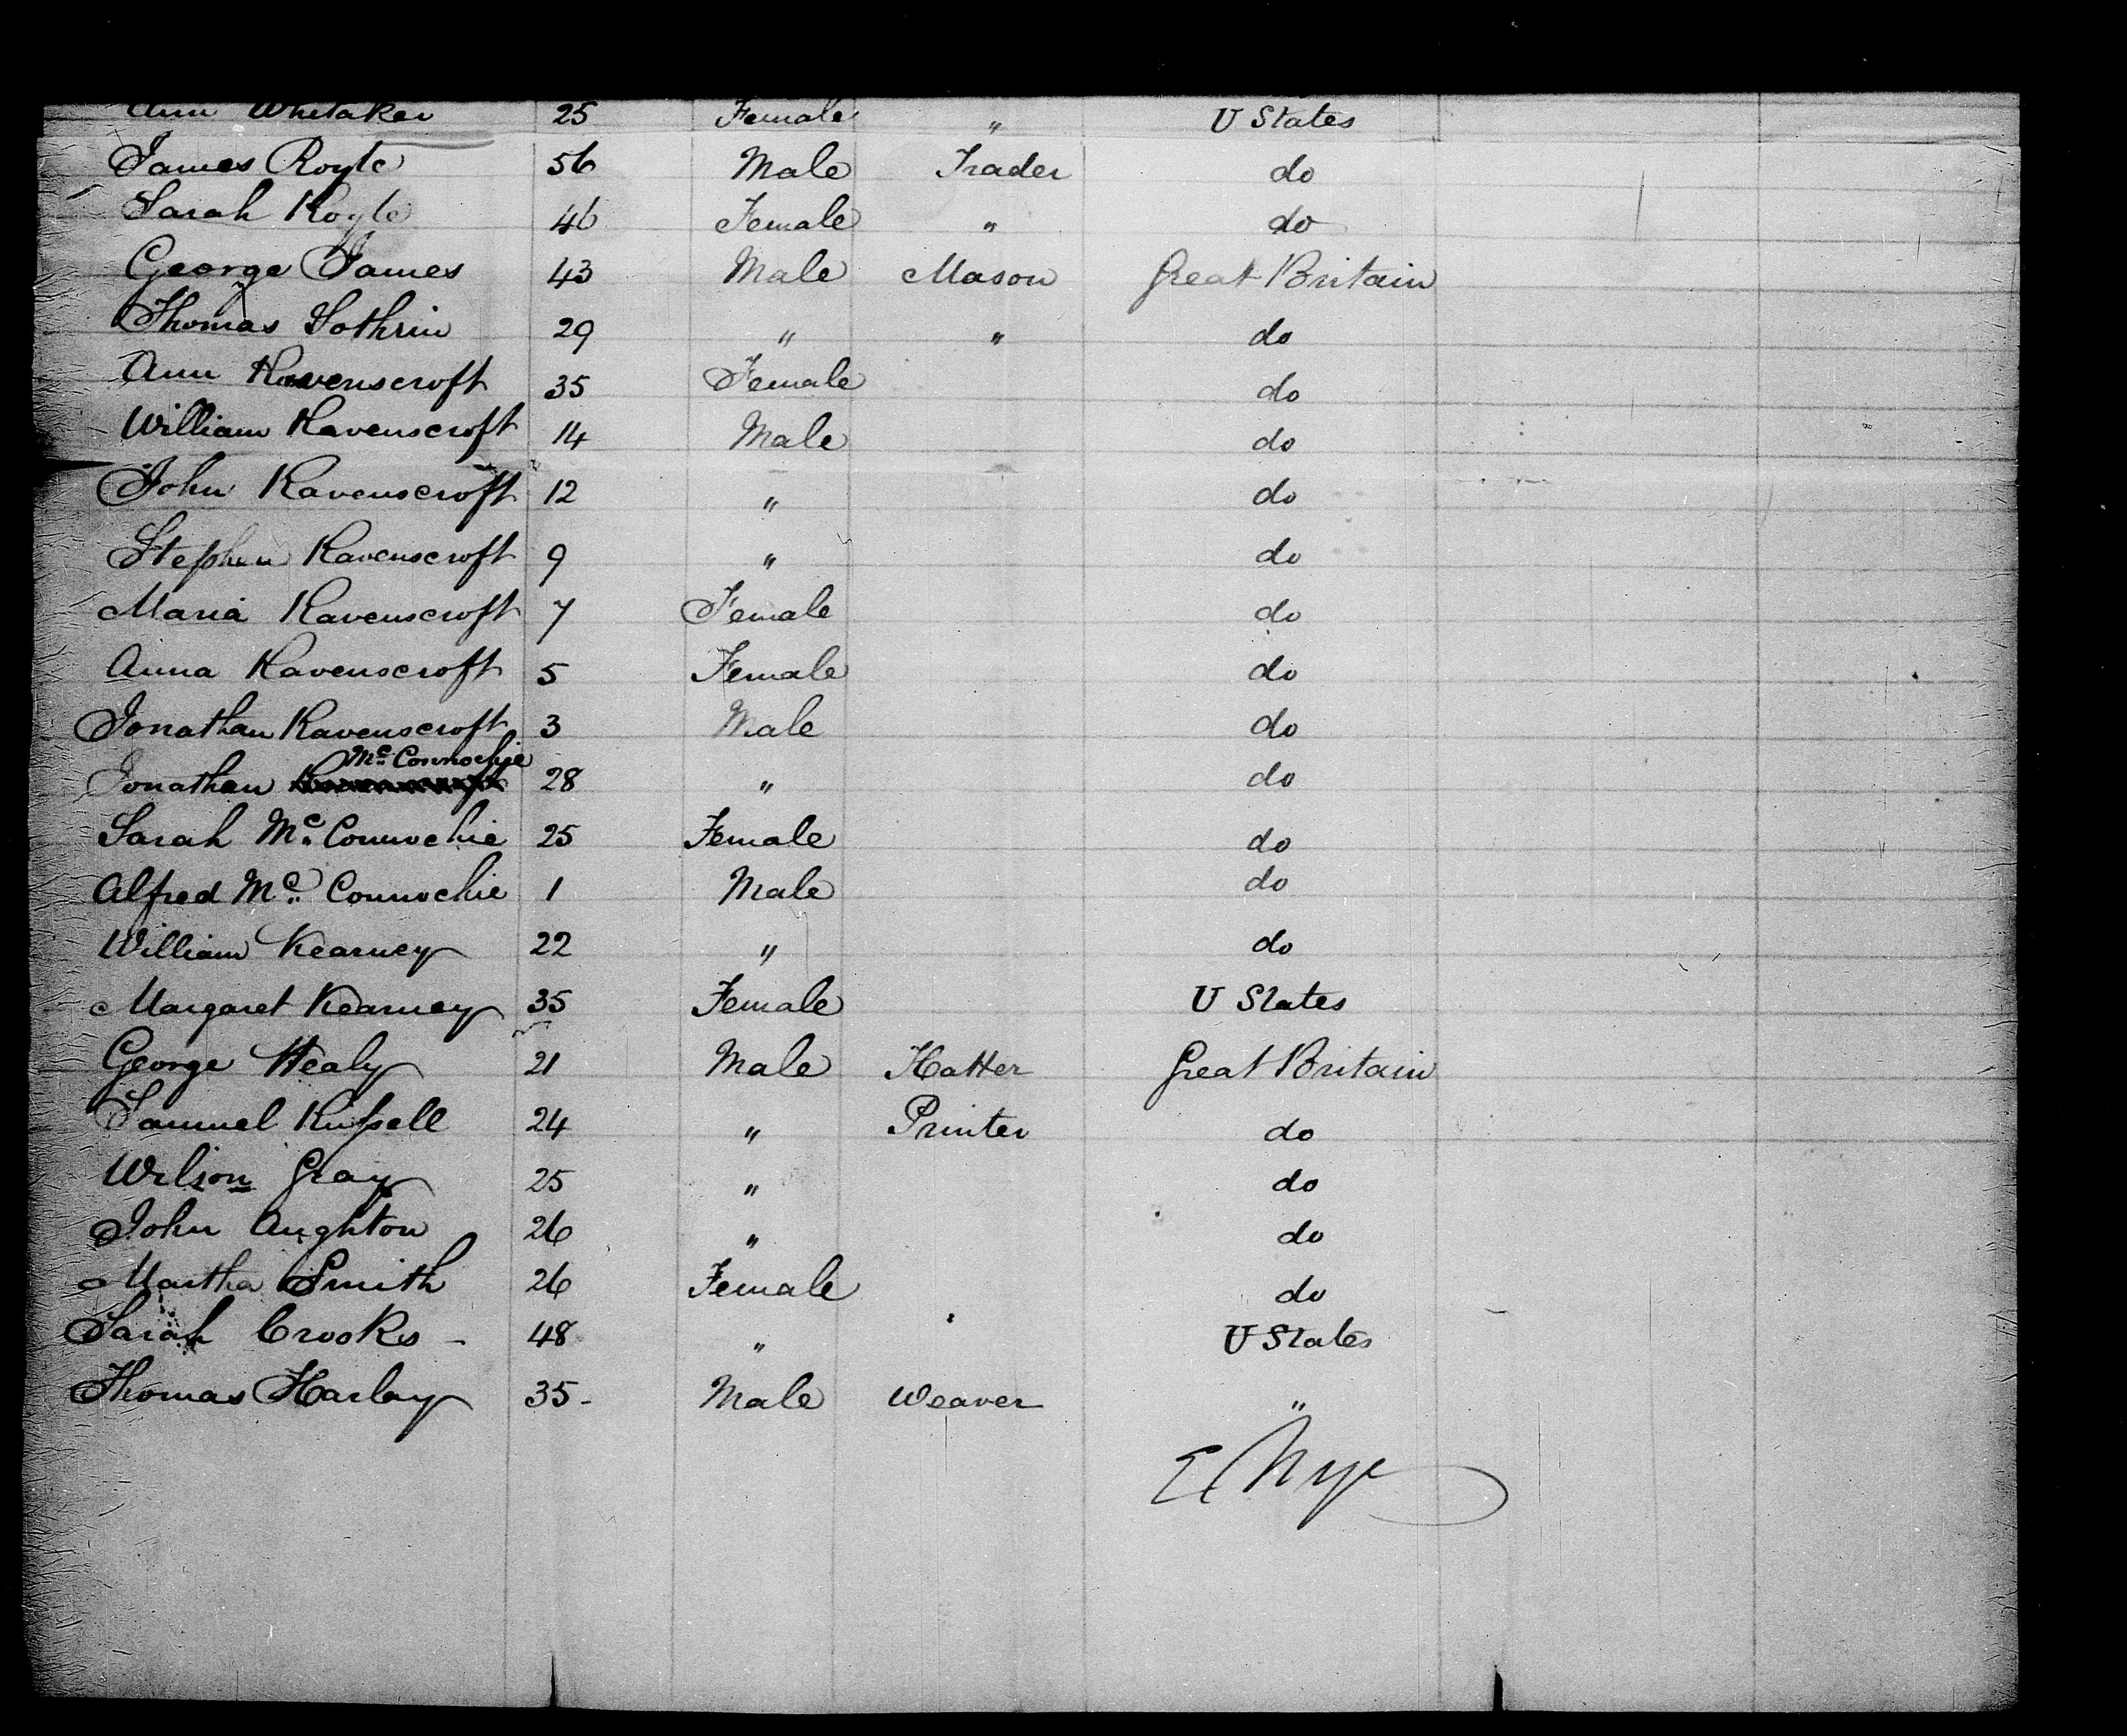 Ann Whitaker 25 Female " U States
James Royle 56 Male Trader do
Sarah Royle 46 Female " do
George James 43 Male Mason Great Britain
Thomas Sothrin 29 " " do
Ann Ravenscroft 35 Female do
William Ravenscroft 14 Male do
John Ravenscroft 12 " do
Stephen Ravenscroft 9 " do
Maria Ravenscroft 7 Female do
Anna Ravenscroft 5 Female do
Jonathan Ravenscroft 3 Male do
Jonathan McConnochie 28 " do
Sarah McConnochie 25 Female do
Alfred McConnochie 1 Male do
William Kearney 22 " do
Margaret Kearney 35 Female U States
George Healy 21 Male Hatter Great Britain
Samuel Russell 24 " Printer do
Wilson Gray 25 " do
John Aughton 26 " do
Martha Smith 26 Female do
Sarah Crooks - 48 " U States
Thomas Harlay 35 - Male Weaver "
E Nye